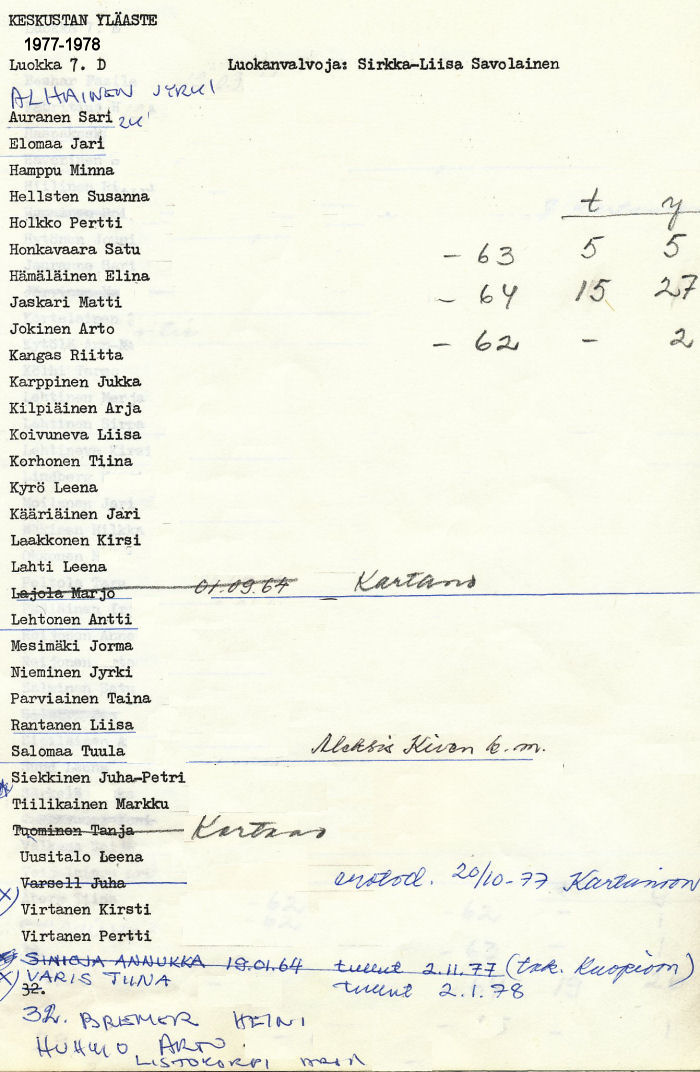 KESKUSTAN YLÄASTE
1977-1978
Luokka 7. D Luokanvalvoja: Sirkka-Liisa Savolainen
ALHAINEN JYRKI
Auranen Sari
Elomaa Jari
Hamppu Minna
Hellsten Susanna t y
Holkko Pertti
Honkavaara Satu - 63 5 5
Hämäläinen Elina
Jaskari Matti - 64 15 27
Jokinen Arto
Kangas Riitta - 62 - 2
Karppinen Jukka
Kilpiäinen Arja
Koivuneva Liisa
Korhonen Tiina
Kyrö Leena
Kääriäinen Jari
Laakkonen Kirsi
Lahti Leena
Lajola Marjo 01.09.64 Kartano
Lehtonen Antti
Mesimäki Jorma
Nieminen Jyrki
Parviainen Taina
Rantanen Liisa
Salomaa Tuula Aleksis Kiven k.m.
Siekkinen Juha-Petri
Tiilikainen Markku
Tuominen Tanja Kartano
Uusitalo Leena
Varsell Juha erotod. 20/10-77 Kartanoon
Virtanen Kirsti
Virtanen Pertti
SINIOJA ANNUKKA 19.01.64 tullut 2.11.77 (tak. Kuopioon)
x) VARIS TIINA tullut 2.1.78
32.
32. BREMER HEINI
HUHMO ARTO